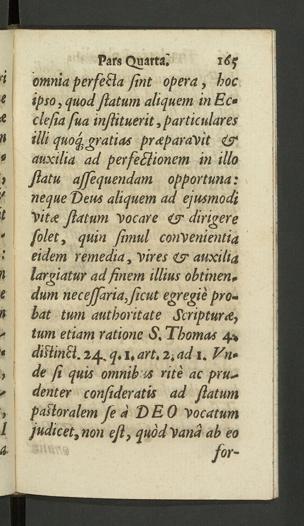 Pars Quarta. 165
omnia perfecta sint opera, hoc
ipso, quod statum aliquem in Ec-
clesia sua instituerit, particulares
illi quoq; gratias præparavit &
auxilia ad perfectionem in illo
statu assequendam opportuna:
neque Deus aliquem ad ejusmodi
vitæ statum vocare & dirigere
solet, quin simul convenientia
eidem remedia, vires & auxilia
largiatur ad finem illius obtinen-
dum necessaria, sicut egregiè pro-
bat tum authoritate Scripturæ,
tum etiam ratione S. Thomas 4.
distinct. 24. q. 1. art. 2. ad 1. Vn-
de si quis omnibus ritè ac pru-
denter consideratis ad statum
pastoralem se à DEO vocatum
judicet, non est, quòd vanâ ab eo
for-